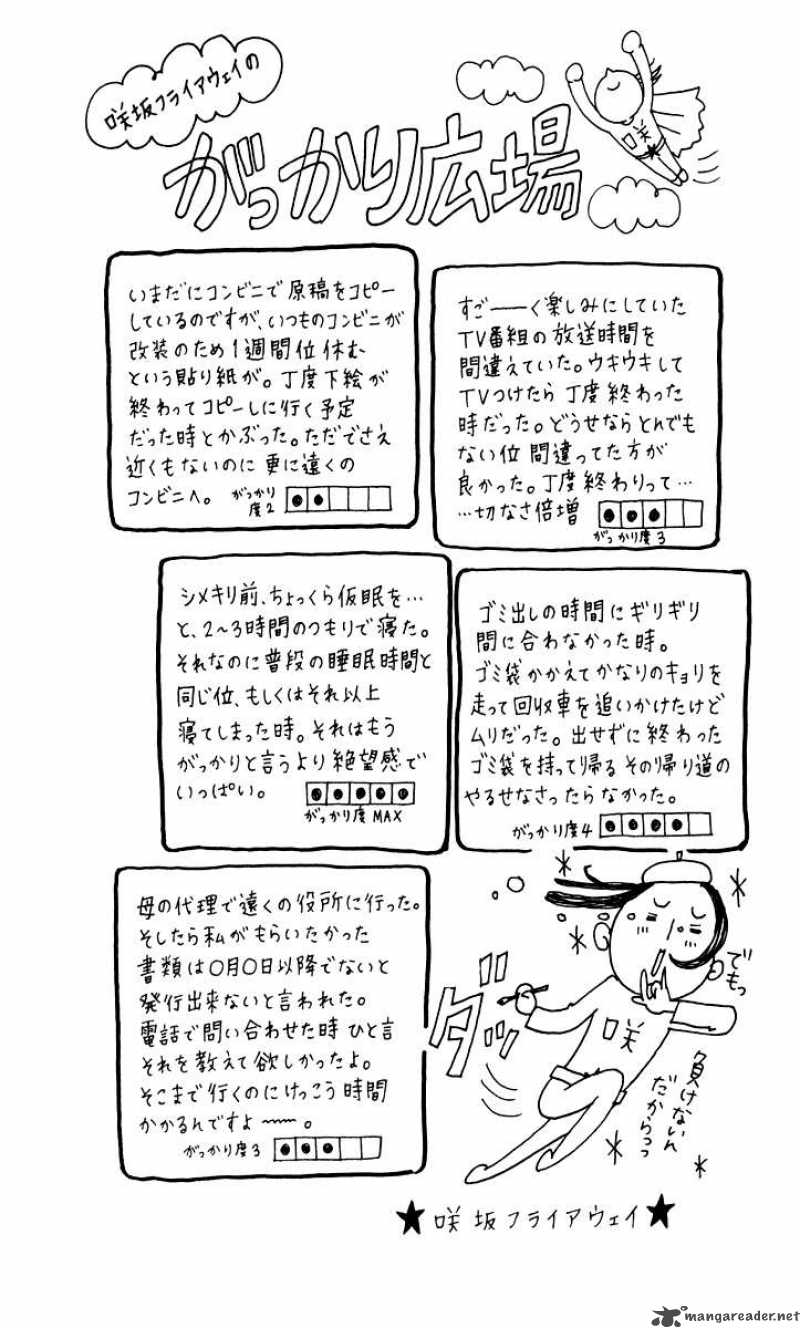 咲坂フライアウェイの
がっかり広場
咲
いまだにコンビニで原稿をコピー
しているのですが、いつものコンビニが
改装のため1週間位休む
という貼り紙が。丁度下絵が
終わってコピーしに行く予定
だった時とかぶった。ただでさえ
近くもないのに更に遠くの
コンビニへ。
がっかり
度2
すごーーく楽しみにしていた
TV番組の放送時間を
間違えていた。ウキウキして
TVつけたら丁度終わった
時だった。どうせならとんでも
ない位間違ってた方が
良かった。丁度終わりって…
…切なさ倍増
がっかり度3
シメキリ前、ちょっくら仮眠を…
と、2〜3時間のつもりで寝た。
それなのに普段の睡眠時間と
同じ位、もしくはそれ以上
寝てしまった時。それはもう
がっかりと言うより絶望感で
いっぱい。
がっかり度MAX
ゴミ出しの時間にギリギリ
間に合わなかった時。
ゴミ袋かかえてかなりのキョリを
走って回収車を追いかけたけど
ムリだった。出せずに終わった
ゴミ袋を持って帰るその帰り道の
やるせなさったらなかった。
がっかり度4
母の代理で遠くの役所に行った。
そしたら私がもらいたかった
書類は〇月〇日以降でないと
発行出来ないと言われた。
電話で問い合わせた時ひと言
それを教えて欲しかったよ。
そこまで行くのにけっこう時間
かかるんですよ〜〜。
がっかり度3
ダッ
咲
でもっ
負けないん
だからっっ
★咲坂フライアウェイ★
mangareader.net